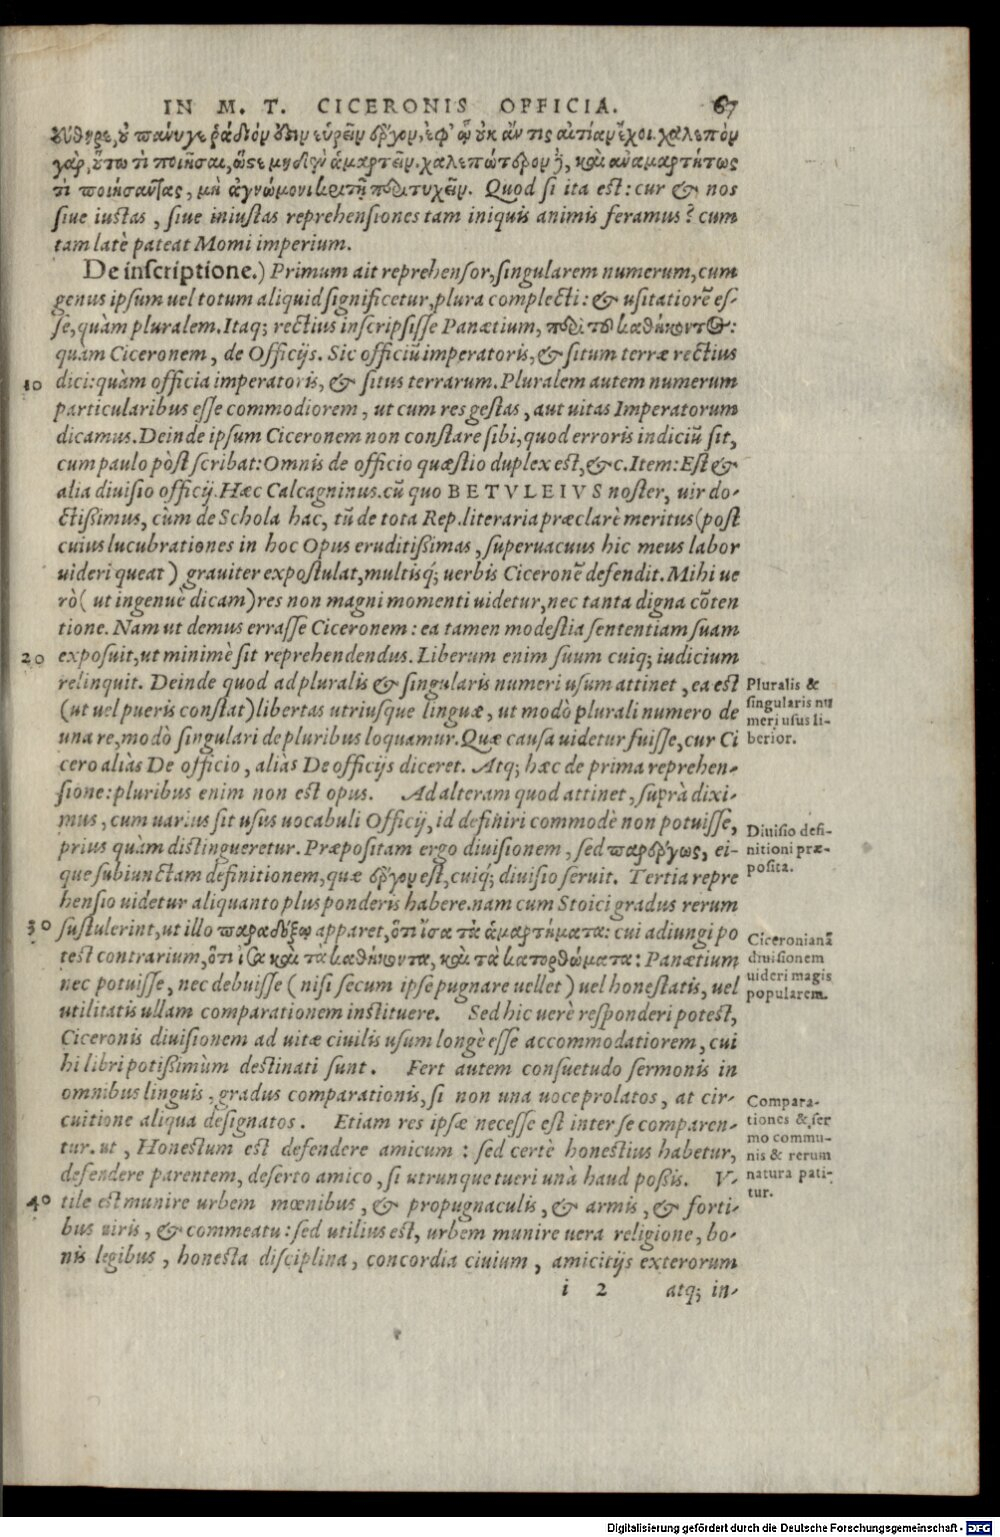 IN M. T. CICERONIS OFFICIA. 67
οὐ πάνυ γε ῥᾴδιον οὐδὲν εὑρεῖν ἔργον, ἐφ' ᾧ οὐκ ἄν τις αἰτίαν ἔχοι. χαλεπὸν
γὰρ, οὕτω τὶ ποιῆσαι, ὥστε μηδὲν ἁμαρτεῖν. χαλεπώτερον δὲ, καὶ ἀναμαρτήτως
τὶ ποιήσαντας, μὴ ἀγνώμονι κριτῇ περιτυχεῖν. Quod si ita est: cur & nos
siue iustas, siue iniustas reprehensiones tam iniquis animis feramus? cum
tam latè pateat Momi imperium.
De inscriptione.) Primum ait reprehensor, singularem numerum, cum
genus ipsum uel totum aliquid significetur, plura complecti: & usitatiorẽ es-
se, quàm pluralem. Itaq; rectius inscripsisse Panætium, περὶ τοῦ καθήκοντος:
quàm Ciceronem, de Officijs. Sic officiũ imperatoris, & situm terræ rectius
10 dici: quàm officia imperatoris, & situs terrarum. Pluralem autem numerum
particularibus esse commodiorem, ut cum res gestas, aut uitas Imperatorum
dicamus. Deinde ipsum Ciceronem non constare sibi, quod erroris indiciũ sit,
cum paulo pòst scribat: Omnis de officio quæstio duplex est, &c. Item: Est &
alia diuisio officij. Hæc Calcagninus. cũ quo BETVLEIVS noster, uir do-
ctißimus, cùm de Schola hac, tũ de tota Rep. literaria præclarè meritus (post
cuius lucubrationes in hoc Opus eruditißimas, superuacuus hic meus labor
uideri queat) grauiter expostulat, multisq́; uerbis Ciceronẽ defendit. Mihi ue
rò (ut ingenuè dicam) res non magni momenti uidetur, nec tanta digna cõten
tione. Nam ut demus errasse Ciceronem: ea tamen modestia sententiam suam
20 exposuit, ut minimè sit reprehendendus. Liberum enim suum cuiq; iudicium
relinquit. Deinde quod ad pluralis & singularis numeri usum attinet, ea est
(ut uel pueris constat) libertas utriusque linguæ, ut modò plurali numero de
una re, modò singulari de pluribus loquamur. Quæ causa uidetur fuisse, cur Ci
cero aliàs De officio, aliàs De officijs diceret. Atq; hæc de prima reprehen-
sione: pluribus enim non est opus. Ad alteram quod attinet, suprà dixi-
mus, cum uarius sit usus uocabuli Officij, id definiri commodè non potuisse,
prius quàm distingueretur. Præpositam ergo diuisionem, sed παρέργως, ei-
que subiunctam definitionem, quæ ἔργον est, cuiq; diuisio seruit. Tertia repre
hensio uidetur aliquanto plus ponderis habere. nam cum Stoici gradus rerum
30 sustulerint, ut illo παραδόξῳ apparet, ὅτι ἴσα τὰ ἁμαρτήματα: cui adiungi po
test contrarium, ὅτι ἴσα καὶ τὰ καθήκοντα, καὶ τὰ κατορθώματα: Panætium
nec potuisse, nec debuisse (nisi secum ipse pugnare uellet) uel honestatis, uel
utilitatis ullam comparationem instituere. Sed hic uerè responderi potest,
Ciceronis diuisionem ad uitæ ciuilis usum longè esse accommodatiorem, cui
hi libri potißimùm destinati sunt. Fert autem consuetudo sermonis in
omnibus linguis, gradus comparationis, si non una uoce prolatos, at cir-
cuitione aliqua designatos. Etiam res ipsæ necesse est inter se comparen-
tur. ut, Honestum est defendere amicum: sed certè honestius habetur,
defendere parentem, deserto amico, si utrunque tueri unà haud poßis. V-
40 tile est munire urbem mœnibus, & propugnaculis, & armis, & forti-
bus uiris, & commeatu: sed utilius est, urbem munire uera religione, bo-
nis legibus, honesta disciplina, concordia ciuium, amicitijs exterorum
i 2 atq; in-
Pluralis &
singularis nu
meri usus li-
berior.
Diuisio defi-
nitioni præ-
posita.
Ciceronianã
diuisionem
uideri magis
popularem.
Compara-
tiones & ser
mo commu-
nis & rerum
natura pati-
tur.
Digitalisierung gefördert durch die Deutsche Forschungsgemeinschaft - DFG